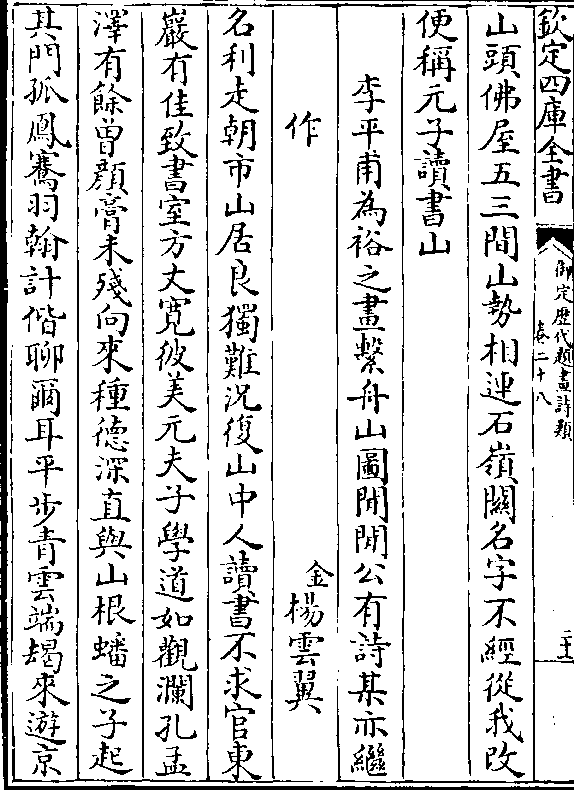 欽定四庫全書
御定歴代題畫詩類
卷二十八
二十一
山頭佛屋五三間山勢相連石嶺關名字不經從我改
便稱元子讀書山
李平甫為裕之畫繫舟山圖閒閒公有詩某亦繼
作
金楊雲翼
名利走朝市山居良獨難況復山中人讀書不求官東
巖有佳致書室方丈寛彼美元夫子學道如觀瀾孔孟
澤有餘曾顔膏未殘向來種德深直與山根蟠之子起
其門孤鳳騫羽翰計偕聊爾耳平步青雲端朅來遊京